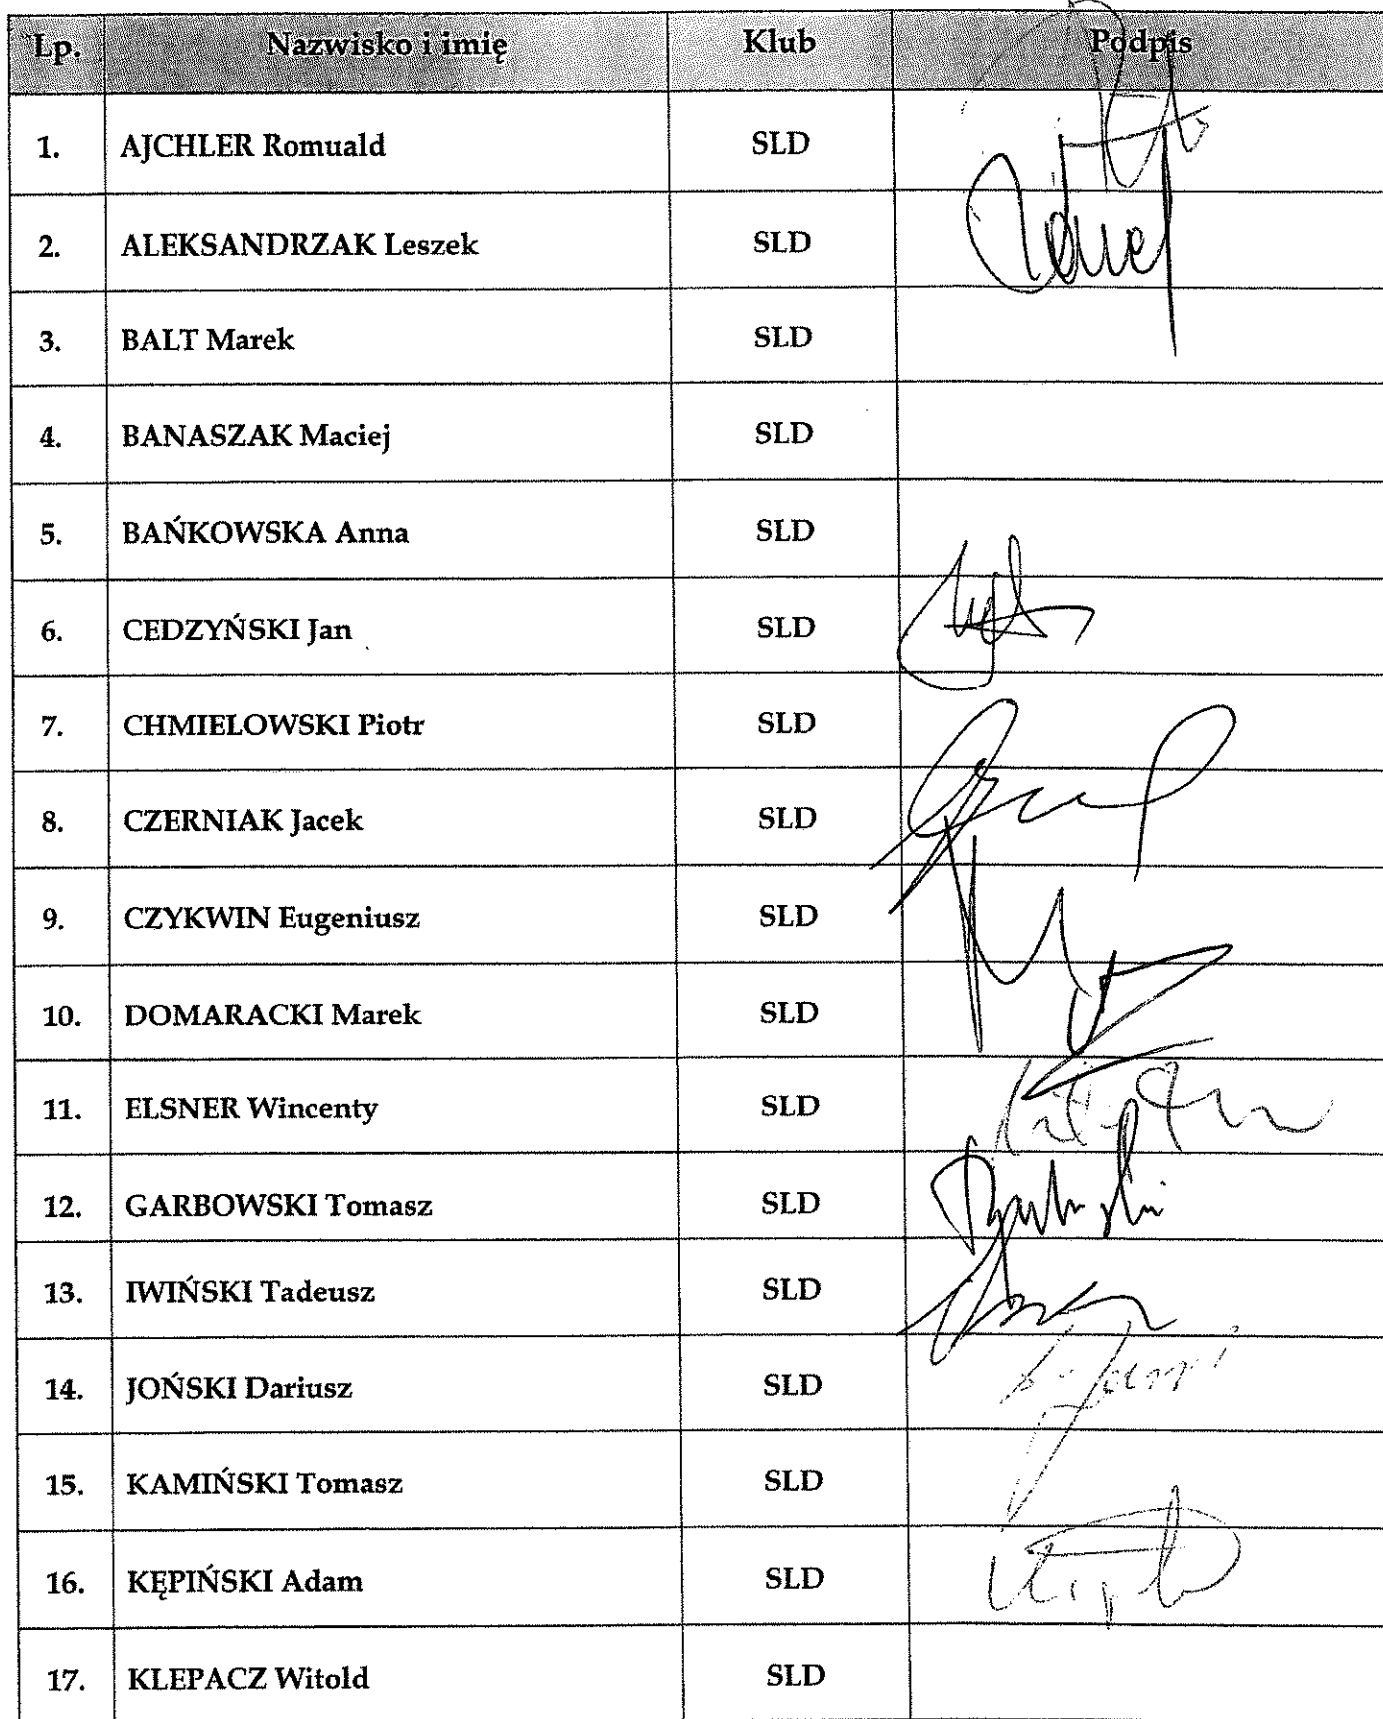 Lp. Nazwisko i imię Klub Podpis
1. AJCHLER Romuald SLD
2. ALEKSANDRZAK Leszek SLD
3. BALT Marek SLD
4. BANASZAK Maciej SLD
5. BAŃKOWSKA Anna SLD
6. CEDZYŃSKI Jan SLD
7. CHMIELOWSKI Piotr SLD
8. CZERNIAK Jacek SLD
9. CZYKWIN Eugeniusz SLD
10. DOMARACKI Marek SLD
11. ELSNER Wincenty SLD
12. GARBOWSKI Tomasz SLD
13. IWIŃSKI Tadeusz SLD
14. JOŃSKI Dariusz SLD
15. KAMIŃSKI Tomasz SLD
16. KĘPIŃSKI Adam SLD
17. KLEPACZ Witold SLD